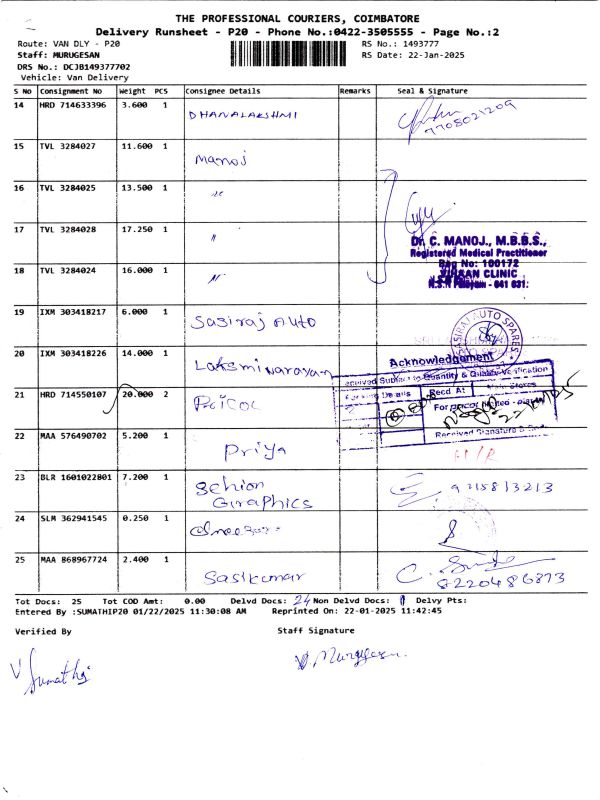 THE PROFESSIONAL COURIERS, COIMBATORE
Delivery Runsheet - P20 - Phone No.:0422-3505555 - Page No.:2
Route: VAN DLY - P20 RS No.: 1493777
Staff: MURUGESAN RS Date: 22-Jan-2025
DRS No.: DCJB149377702
Vehicle: Van Delivery
S No Consignment No Weight PCS Consignee Details Remarks Seal & Signature
14 HRD 714633396 3.600 1 DHANALAKSHMI 7708021209
15 TVL 3284027 11.600 1 Manoj
16 TVL 3284025 13.500 1 "
17 TVL 3284028 17.250 1 "
Dr. C. MANOJ., M.B.B.S.,
Registered Medical Practitioner
Reg No: 100172
18 TVL 3284024 16.000 1 "
CLINIC
- 641 031.
19 IXM 303418217 6.000 1 Sasiraj Auto
SASIRAJ AUTO SPARES
20 IXM 303418226 14.000 1 Laksminarayan
Acknowledgement
Received Subject to Quantity & Quality Verification
21 HRD 714550107 20.000 2 Pricol
Details Recd At Stores
For pricol limited - plant
22 MAA 576490702 5.200 1 Priya
Received Signature &
23 BLR 1601022801 7.200 1 Schion Graphics 9215813213
24 SLM 362941545 0.250 1
25 MAA 868967724 2.400 1 Sasikumar 8220486873
Tot Docs: 25 Tot COD Amt: 0.00 Delvd Docs: 24 Non Delvd Docs: 1 Delvy Pts:
Entered By :SUMATHIP20 01/22/2025 11:30:08 AM Reprinted On: 22-01-2025 11:42:45
Verified By Staff Signature
V Sumathi V. Murugesan